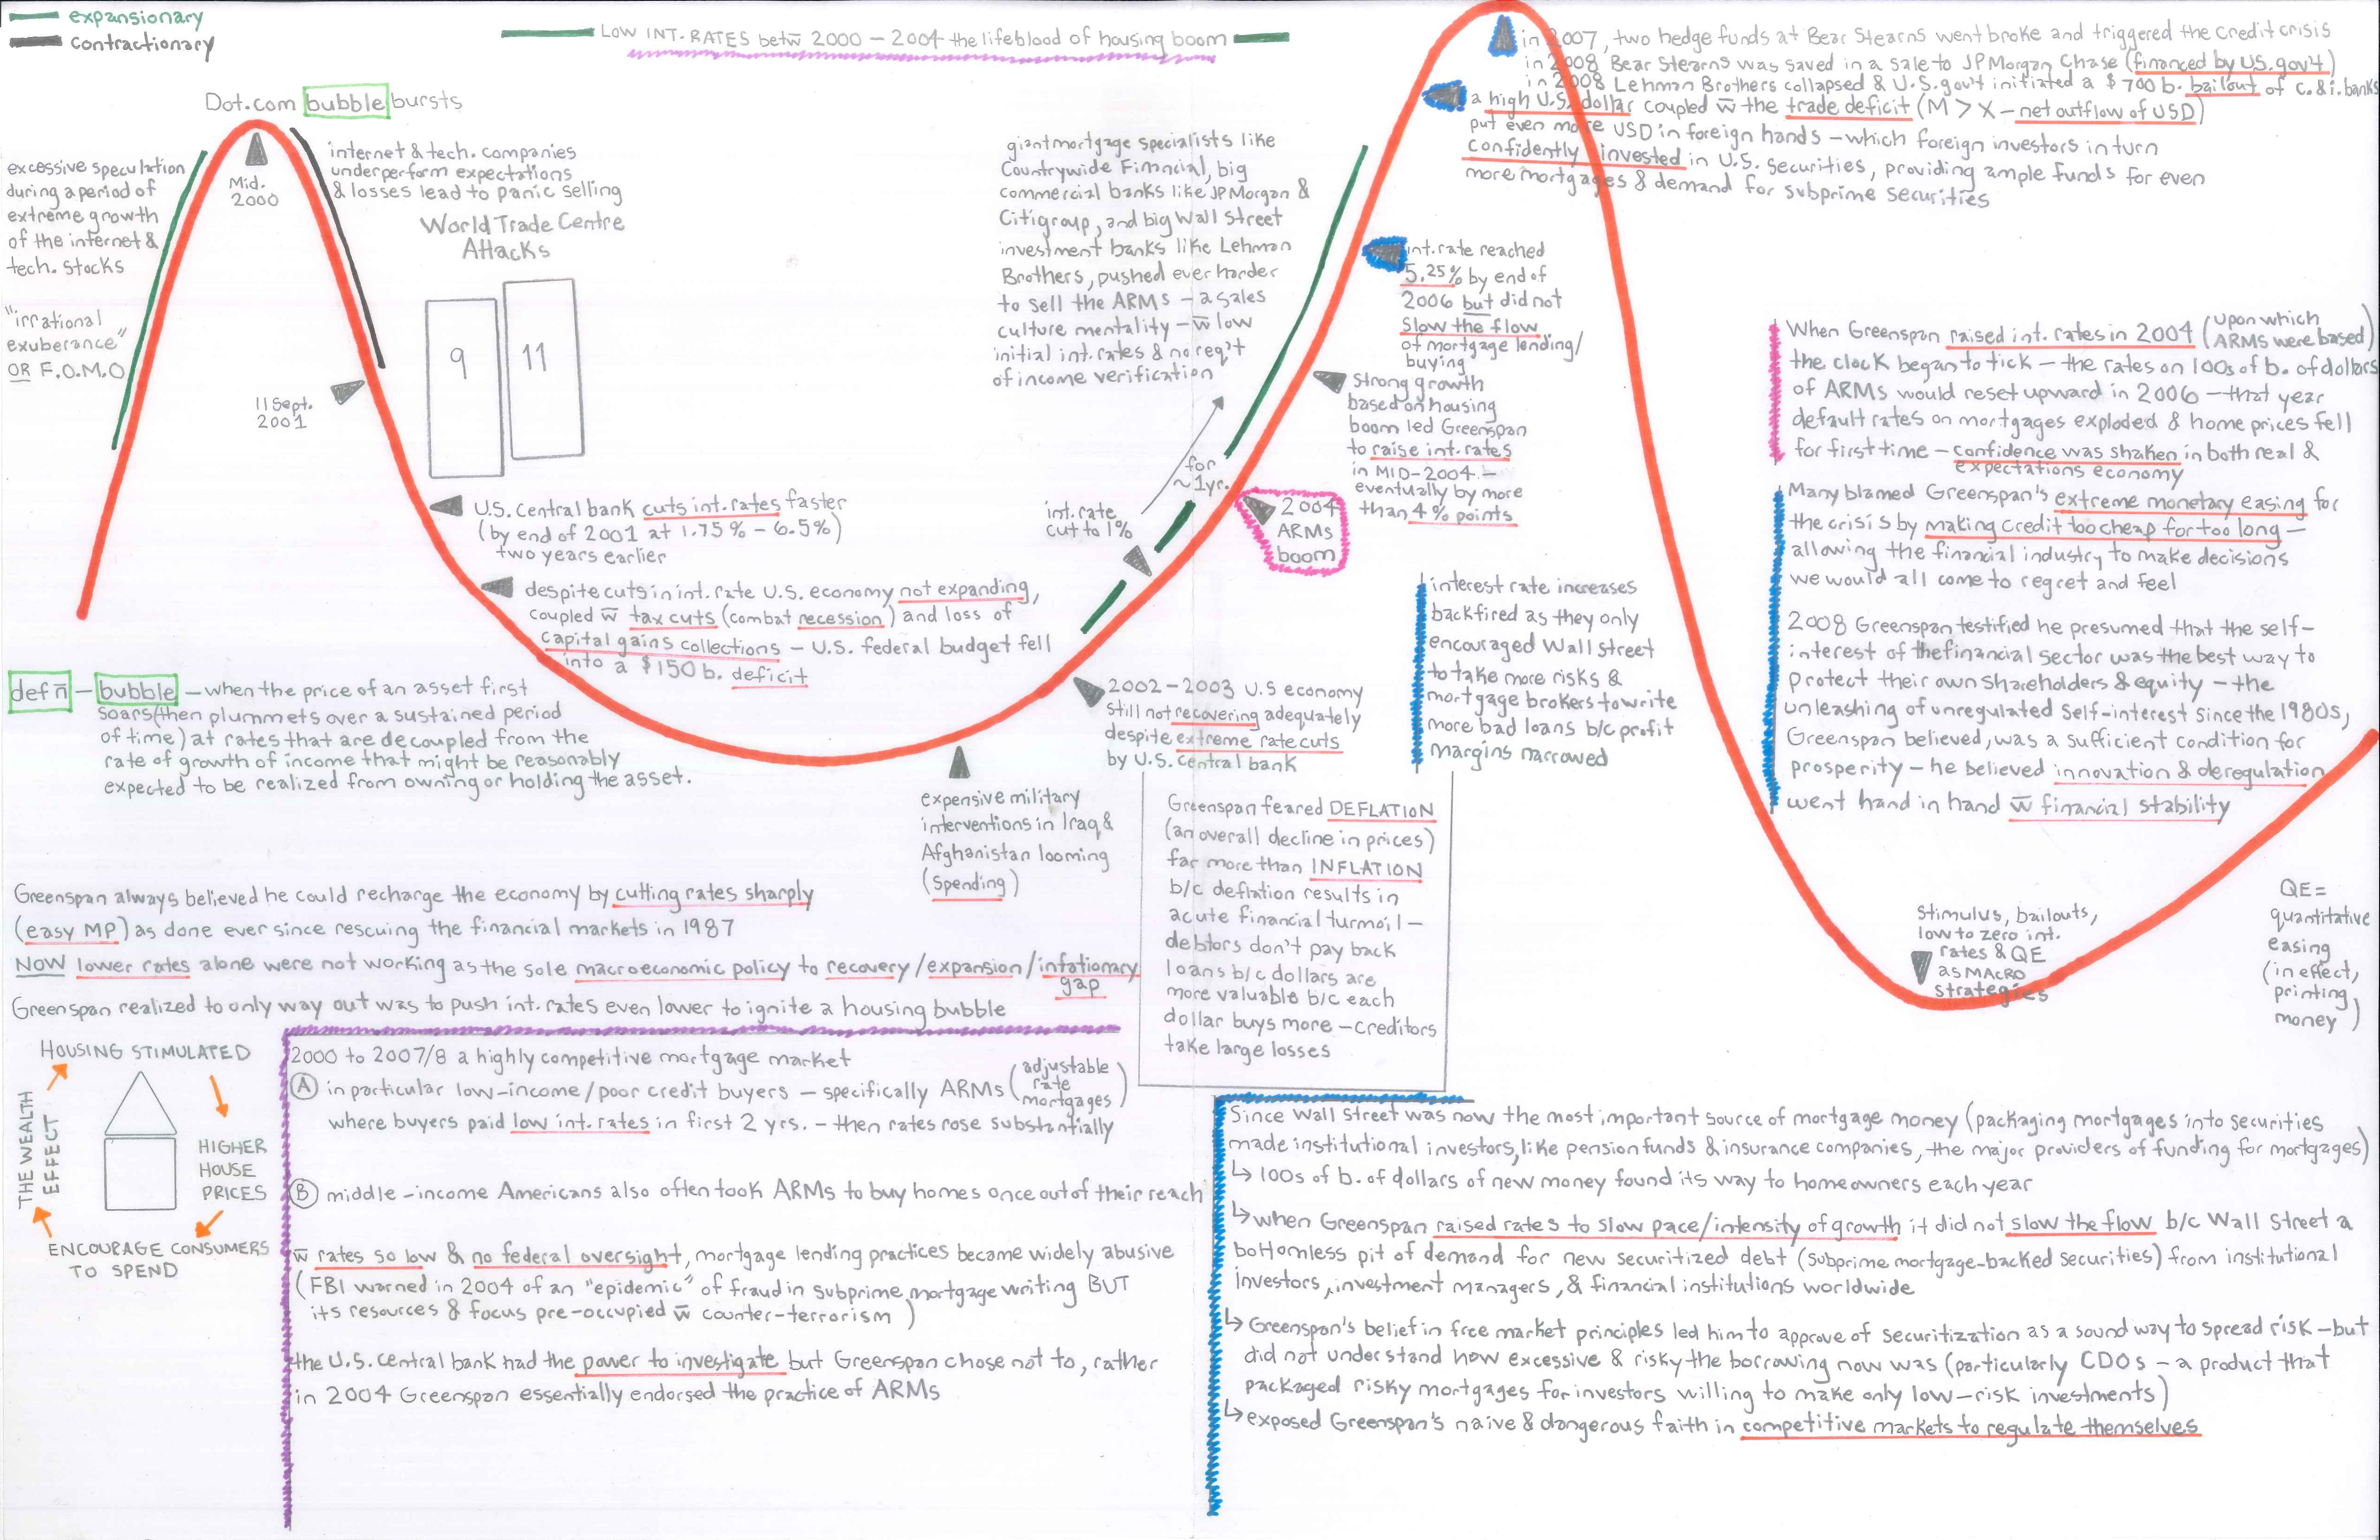 expansionary
contractionary
LOW INT. RATES betw̄ 2000 – 2004 the lifeblood of housing boom
Dot.com bubble bursts
Mid.
2000
excessive speculation
during a period of
extreme growth
of the internet &
tech. stocks
"irrational
exuberance"
OR F.O.M.O
internet & tech. companies
underperform expectations
& losses lead to panic selling
World Trade Centre
Attacks
9
11
11 Sept.
2001
U.S. central bank cuts int. rates faster
(by end of 2001 at 1.75% – 6.5%)
two years earlier
despite cuts in int. rate U.S. economy not expanding,
coupled w̄ tax cuts (combat recession) and loss of
capital gains collections – U.S. federal budget fell
into a $150 b. deficit
def n̄ – bubble – when the price of an asset first
soars (then plummets over a sustained period
of time) at rates that are decoupled from the
rate of growth of income that might be reasonably
expected to be realized from owning or holding the asset.
expensive military
interventions in Iraq &
Afghanistan looming
(spending)
2002 – 2003 U.S economy
still not recovering adequately
despite extreme rate cuts
by U.S. central bank
int. rate
cut to 1%
for
~1yr.
giant mortgage specialists like
Countrywide Financial, big
commercial banks like JPMorgan &
Citigroup, and big Wall Street
investment banks like Lehman
Brothers, pushed ever harder
to sell the ARMs – a sales
culture mentality – w̄ low
initial int. rates & no req't
of income verification
2004
ARMs
boom
Strong growth
based on housing
boom led Greenspan
to raise int. rates
in MID-2004 –
eventually by more
than 4 % points
int. rate reached
5.25% by end of
2006 but did not
slow the flow
of mortgage lending/
buying
in 2007, two hedge funds at Bear Stearns went broke and triggered the credit crisis
in 2008 Bear Stearns was saved in a sale to JPMorgan Chase (financed by U.S. gov't)
in 2008 Lehman Brothers collapsed & U.S. gov't initiated a $700 b. bailout of c. & i. banks
a high U.S. dollar coupled w̄ the trade deficit (M > X – net outflow of USD)
put even more USD in foreign hands – which foreign investors in turn
confidently invested in U.S. securities, providing ample funds for even
more mortgages & demand for subprime securities
interest rate increases
backfired as they only
encouraged Wall Street
to take more risks &
mortgage brokers to write
more bad loans b/c profit
margins narrowed
When Greenspan raised int. rates in 2004 (upon which ARMs were based)
the clock began to tick – the rates on 100s of b. of dollars
of ARMs would reset upward in 2006 – that year
default rates on mortgages exploded & home prices fell
for first time – confidence was shaken in both real &
expectations economy
Many blamed Greenspan's extreme monetary easing for
the crisis by making credit too cheap for too long –
allowing the financial industry to make decisions
we would all come to regret and feel
2008 Greenspan testified he presumed that the self-
interest of the financial sector was the best way to
protect their own shareholders & equity – the
unleashing of unregulated self-interest since the 1980s,
Greenspan believed, was a sufficient condition for
prosperity – he believed innovation & deregulation
went hand in hand w̄ financial stability
Stimulus, bailouts,
low to zero int.
rates & QE
as MACRO
strategies
QE =
quantitative
easing
(in effect,
printing
money)
Greenspan feared DEFLATION
(an overall decline in prices)
far more than INFLATION
b/c deflation results in
acute financial turmoil –
debtors don't pay back
loans b/c dollars are
more valuable b/c each
dollar buys more – creditors
take large losses
Greenspan always believed he could recharge the economy by cutting rates sharply
(easy MP) as done ever since rescuing the financial markets in 1987
NOW lower rates alone were not working as the sole macroeconomic policy to recovery/expansion/inflationary
gap
Greenspan realized to only way out was to push int. rates even lower to ignite a housing bubble
HOUSING STIMULATED
HIGHER
HOUSE
PRICES
ENCOURAGE CONSUMERS
TO SPEND
THE WEALTH
EFFECT
2000 to 2007/8 a highly competitive mortgage market
(A) in particular low-income/poor credit buyers – specifically ARMs (adjustable rate mortgages)
where buyers paid low int. rates in first 2 yrs. – then rates rose substantially
(B) middle-income Americans also often took ARMs to buy homes once out of their reach
w̄ rates so low & no federal oversight, mortgage lending practices became widely abusive
(FBI warned in 2004 of an "epidemic" of fraud in subprime mortgage writing BUT
its resources & focus pre-occupied w̄ counter-terrorism)
the U.S. central bank had the power to investigate but Greenspan chose not to, rather
in 2004 Greenspan essentially endorsed the practice of ARMs
Since Wall Street was now the most important source of mortgage money (packaging mortgages into securities
made institutional investors, like pension funds & insurance companies, the major providers of funding for mortgages)
↳ 100s of b. of dollars of new money found its way to homeowners each year
↳ when Greenspan raised rates to slow pace/intensity of growth it did not slow the flow b/c Wall Street a
bottomless pit of demand for new securitized debt (subprime mortgage-backed securities) from institutional
investors, investment managers, & financial institutions worldwide
↳ Greenspan's belief in free market principles led him to approve of securitization as a sound way to spread risk – but
did not understand how excessive & risky the borrowing now was (particularly CDOs – a product that
packaged risky mortgages for investors willing to make only low-risk investments)
↳ exposed Greenspan's naive & dangerous faith in competitive markets to regulate themselves